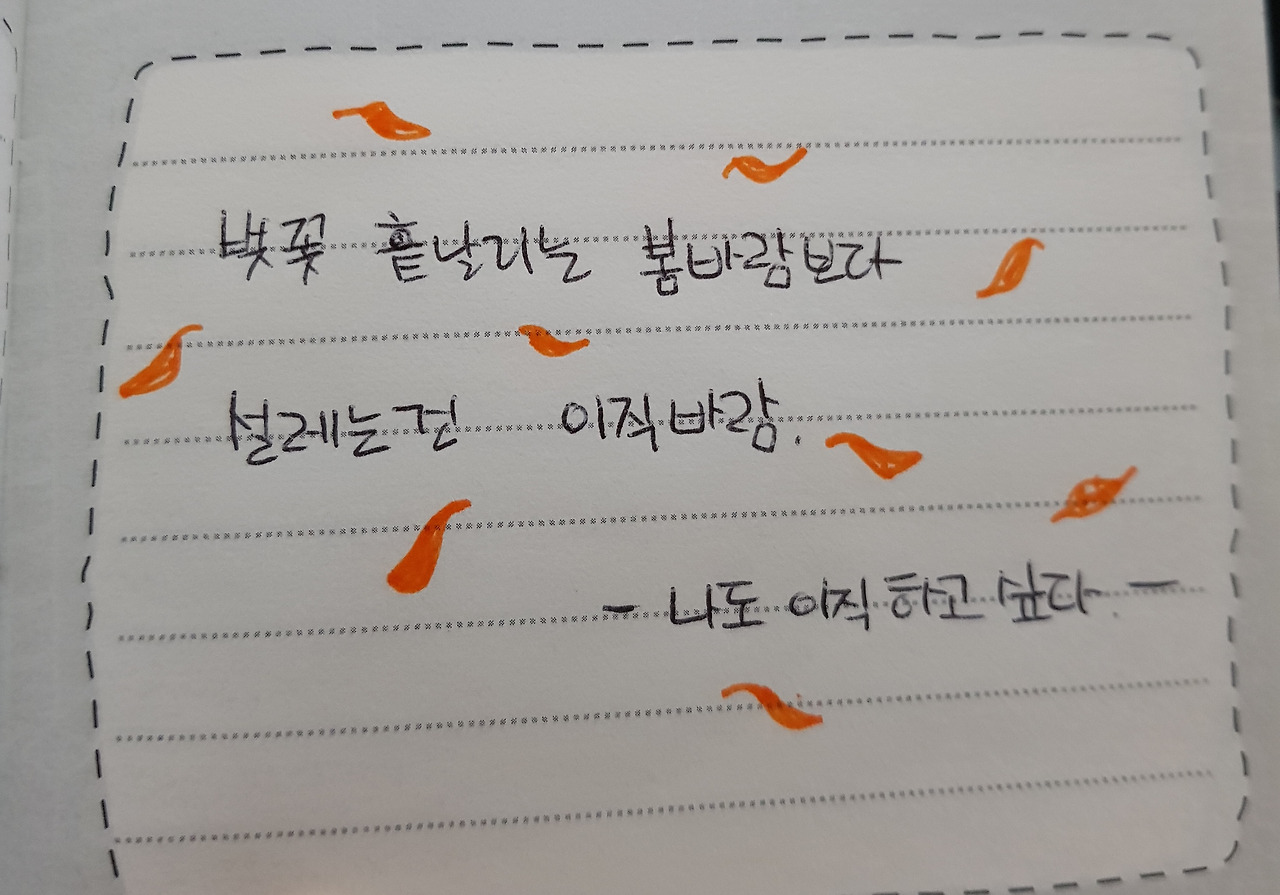 벚꽃 흩날리는 봄바람보다
설레는건 이직바람.
- 나도 이직하고 싶다. -